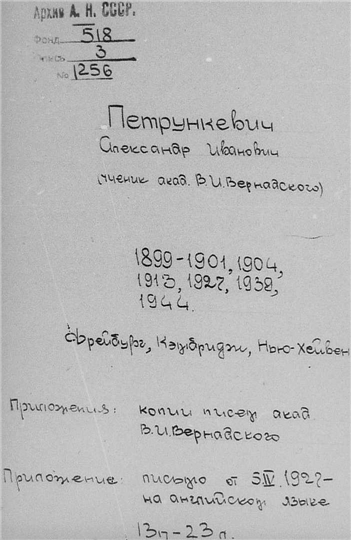 Архив А. Н. СССР.
Фонд 518
Опись 3
№ 1256
Петрункевич
Александр Иванович
(ученик акад. В.И.Вернадского)
1899-1901, 1904,
1913, 1927, 1938,
1944.
Фрейбург, Кэмбридж, Нью-Хейвен
Приложения: копии писем акад.
В.И.Вернадского
Приложение: письмо от 5 IV 1927-
на английском языке